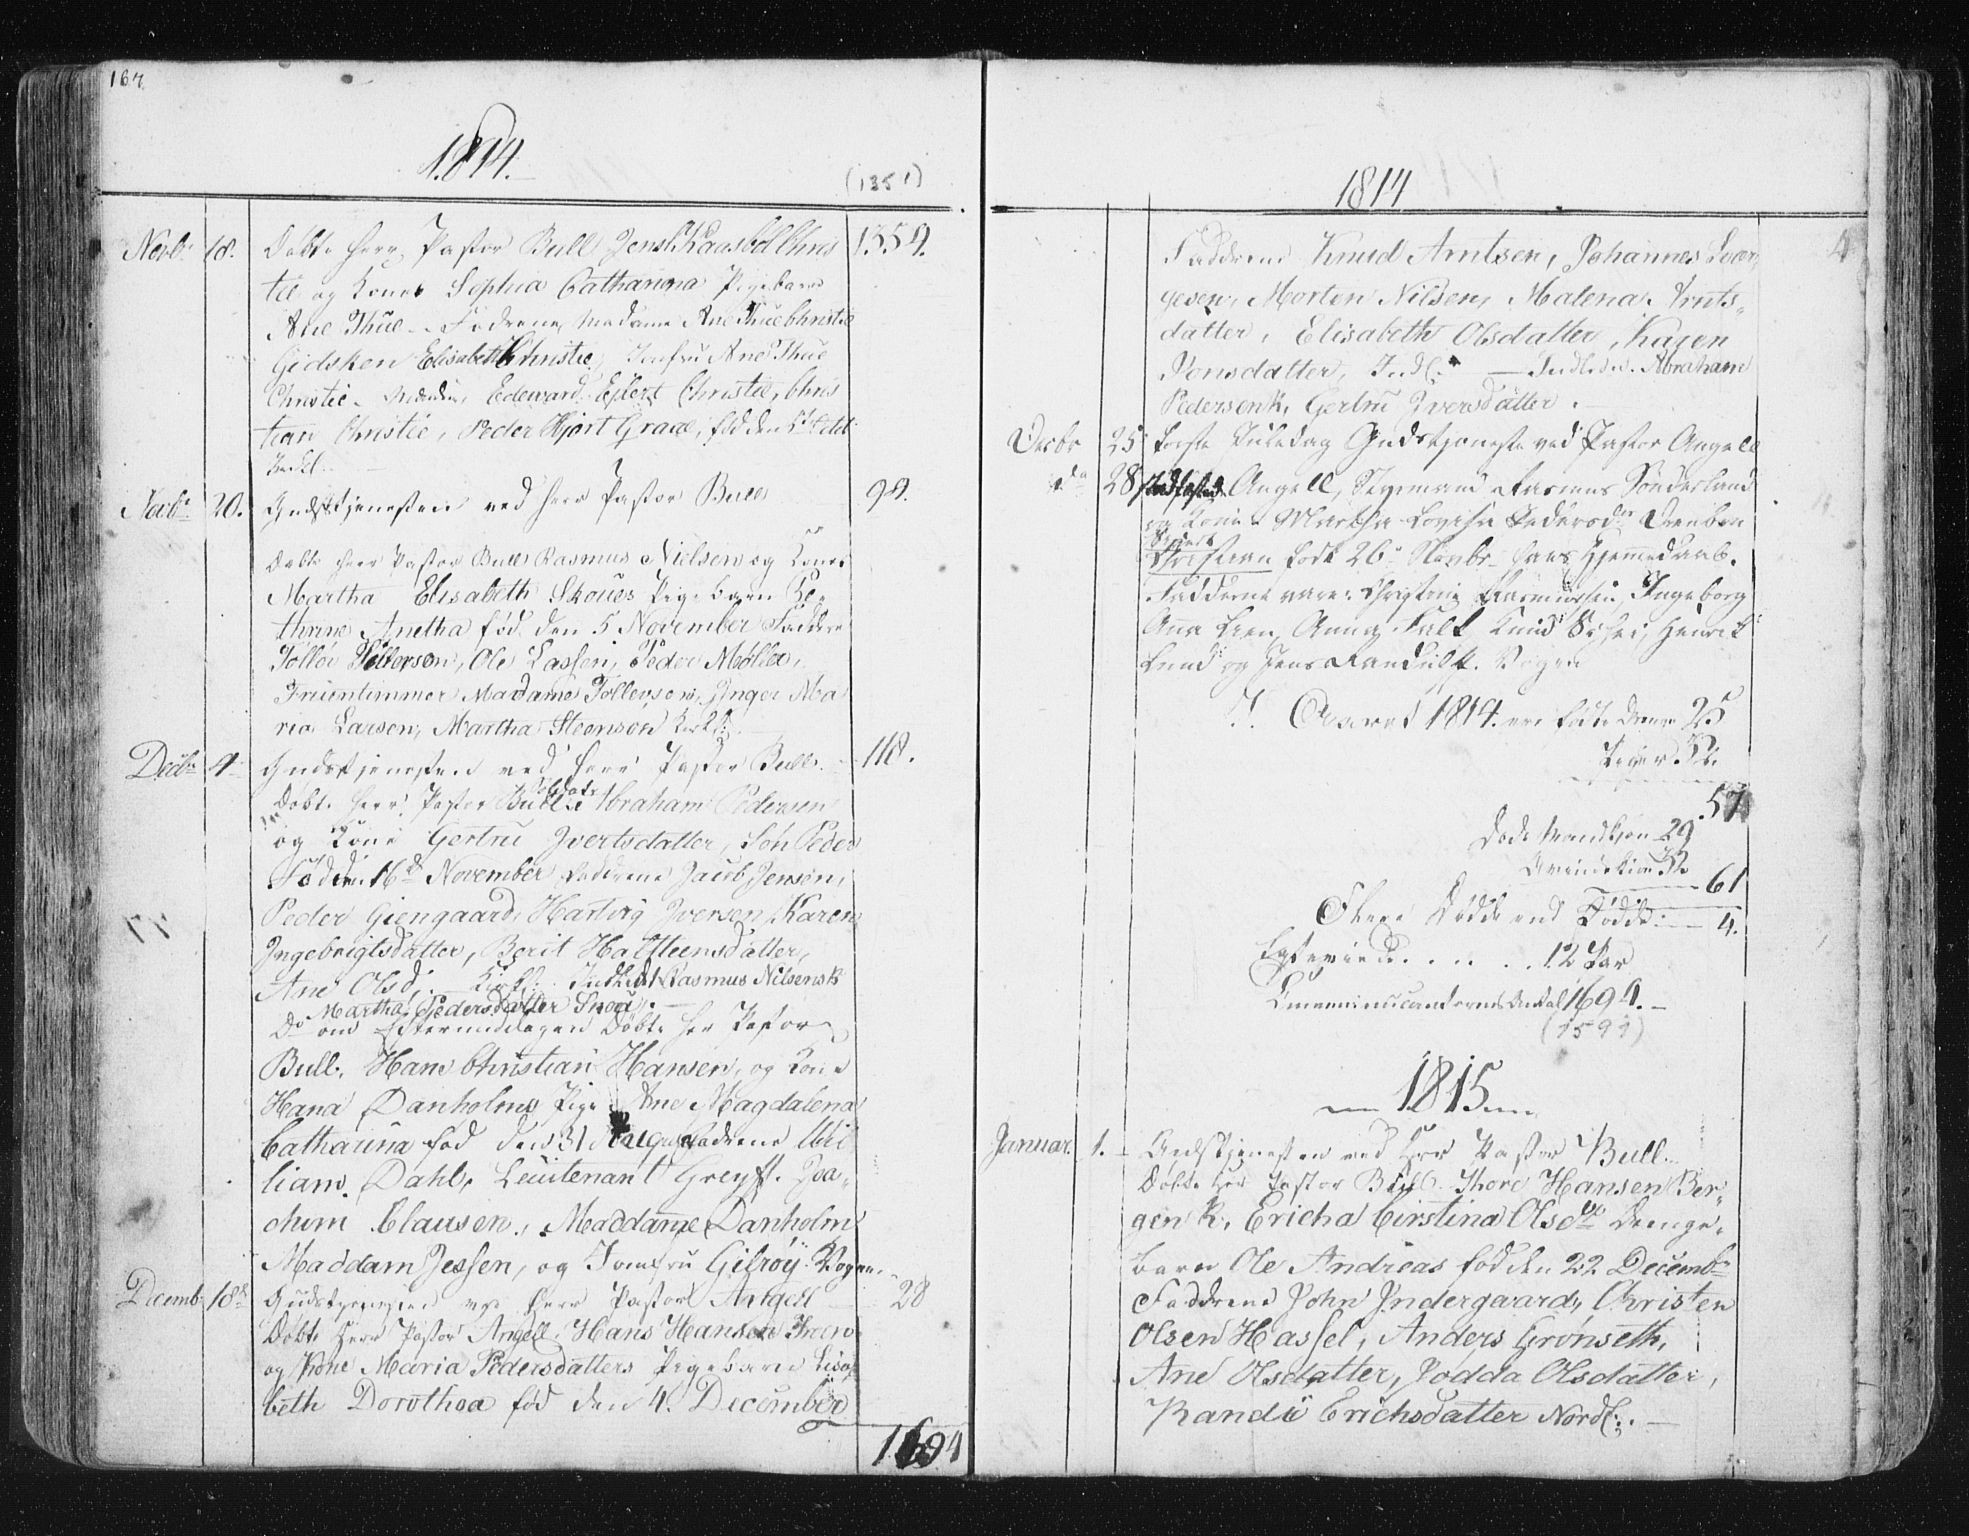 167.
1814.
(1351)
Novbr 18. Døbte Herr Pastor Bull Jens Kaasbøl Chris 1354.
tie og Kone Sophia Catharina Pigebarn
Ane Thue - Fadrene, Madame Ane Thue Christie
Gidsken Elisabeth Christie, Jomfru Ane Thue
Christie - Edeward Eilert Christie, Chris
tian Christie, Peder Hjort Graae, fød den
Novbr 20. Gudstjenesten ved Herr Pastor Bull 98.
Døbte Herr Pastor Bull Rasmus Nielsen og Kone
Martha Elisabeth Skoues Pigebarn Ka
thrine Anetha fød den 5 November Faddere
Tollev Pettersen, Ole Lassen, Peder Møller,
Fruentimmer Madame Tollevsen, Inger Ma
ria Larsen, Martha Steenson
Decbr 4 Gudstjenesten ved Herr Pastor Bull. 118.
Døbte Herr Pastor Bull Abraham Pedersen
og Kone Gertru Ivertsdatter, Søn Peder
Fød den 16de November Faddrene Jacob Jensen,
Peder Giengaard, Hartvig Iversen, Karen
Ingebrigtsdatter, Berit Halsteensdatter,
Ane Olsd. Rasmus Nilsens K
Martha Pedersdatter
Do om Eftermiddagen Døbte Her Pastor
Bull. Hans Christian Hansen, og Kone
Hana Danholms Pige Ane Magdalena
Catharina fød den 31 Aug. Fadrene Wil
liam. Dahl, Leuitenant Greyff. Joa,,
chim Clausen, Maddame Danholm
Maddam Jessen, og Jomfru Gilrøy. Vognen.
Decemb. 18de Gudstjenesten ved Herr Pastor Angell 28
Døbte Herr Pastor Angell. Hans Hansen
og Kone Maria Pedersdatters Pigebarn Lisa
beth Dorothea fød den 4. December
1694
1814
4
Faddrene Knud Arntsen, Johannes
gesen, Morten Nilsen, Malena Arnts,,
datter, Elisabeth Olsdatter, Karen
Jonsdatter, Indl. Abraham
Pedersen K. Gertru Iversdatter.
Decbr 25 første Juledag Gudstjeneste ved Pastor Angell
do 28 Angell, Styrmand Rasmus Sønderland
og Kone Martha Lovisa Pedersdr Drenbon
Christian født 26 Novbr hans Hjemmedaab.
Fadderne vare: Christine Rasmussen, Ingeborg
Ana Lien, Anna Falk, Knud Henrik
Lund og Jens Randulf. Vognen
I Aaret 1814. ere fødte Drenge 25
Piger 32.
57
Døde Mandkjøn 29
Qvindekiøn 32
61
Flere Dødde end Fødde 4.
Egteviede . . . . 12 Par
Communicanternes Antal 1694.
(1591)
1815
Januar. 1. Gudstjenesten ved Herr Pastor Bull.
Døbte Her Pastor Bull. Thore Hansen Ber,,
gen K. Ericha Cirstina Olsdtr Drenge,,
barn Ole Andreas fød den 22 Decembr
Faddrene John Indergaard, Christen
Olsen Hassel, Anders Grønseth,
Ane Olsdatter, Jodda Olsdatter,
Randi Erichsdatter Nordl.